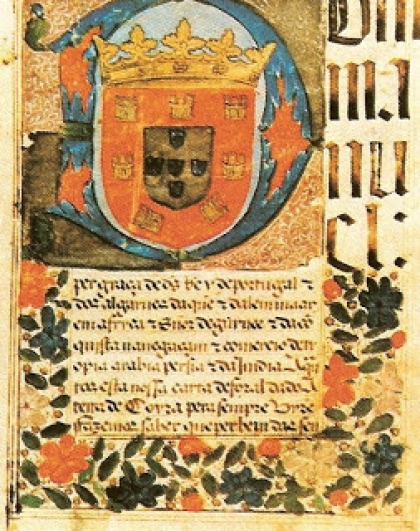 Dom
ma
nu
el:
per graça de ds Rey de portugal &
dos algarues daque & dalem maar
em africa & Snor de guinee & da co
quista nauegaçam & comercio de ty
opia arabia persia & da India A q
tos esta nossa carta de foral dado A
terra de pera sempre virē
fazemos saber que per bem das sen